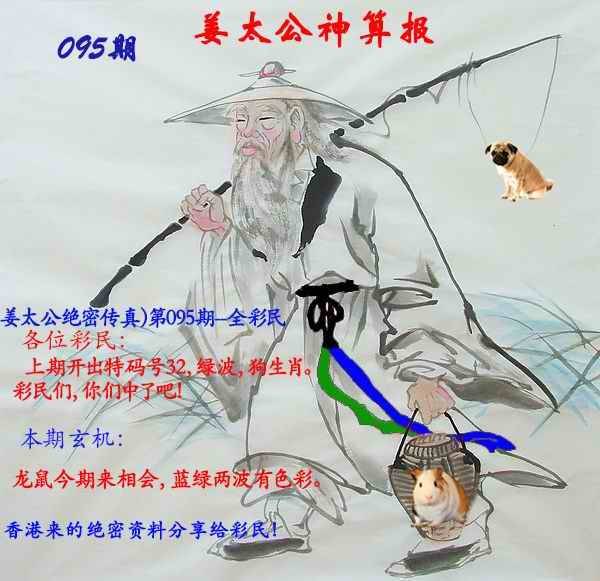 姜太公神算报
095期
姜太公绝密传真)第095期--全彩民
各位彩民:
上期开出特码号32,绿波,狗生肖。
彩民们,你们中了吧!
本期玄机:
龙鼠今期来相会,蓝绿两波有色彩。
香港来的绝密资料分享给彩民!